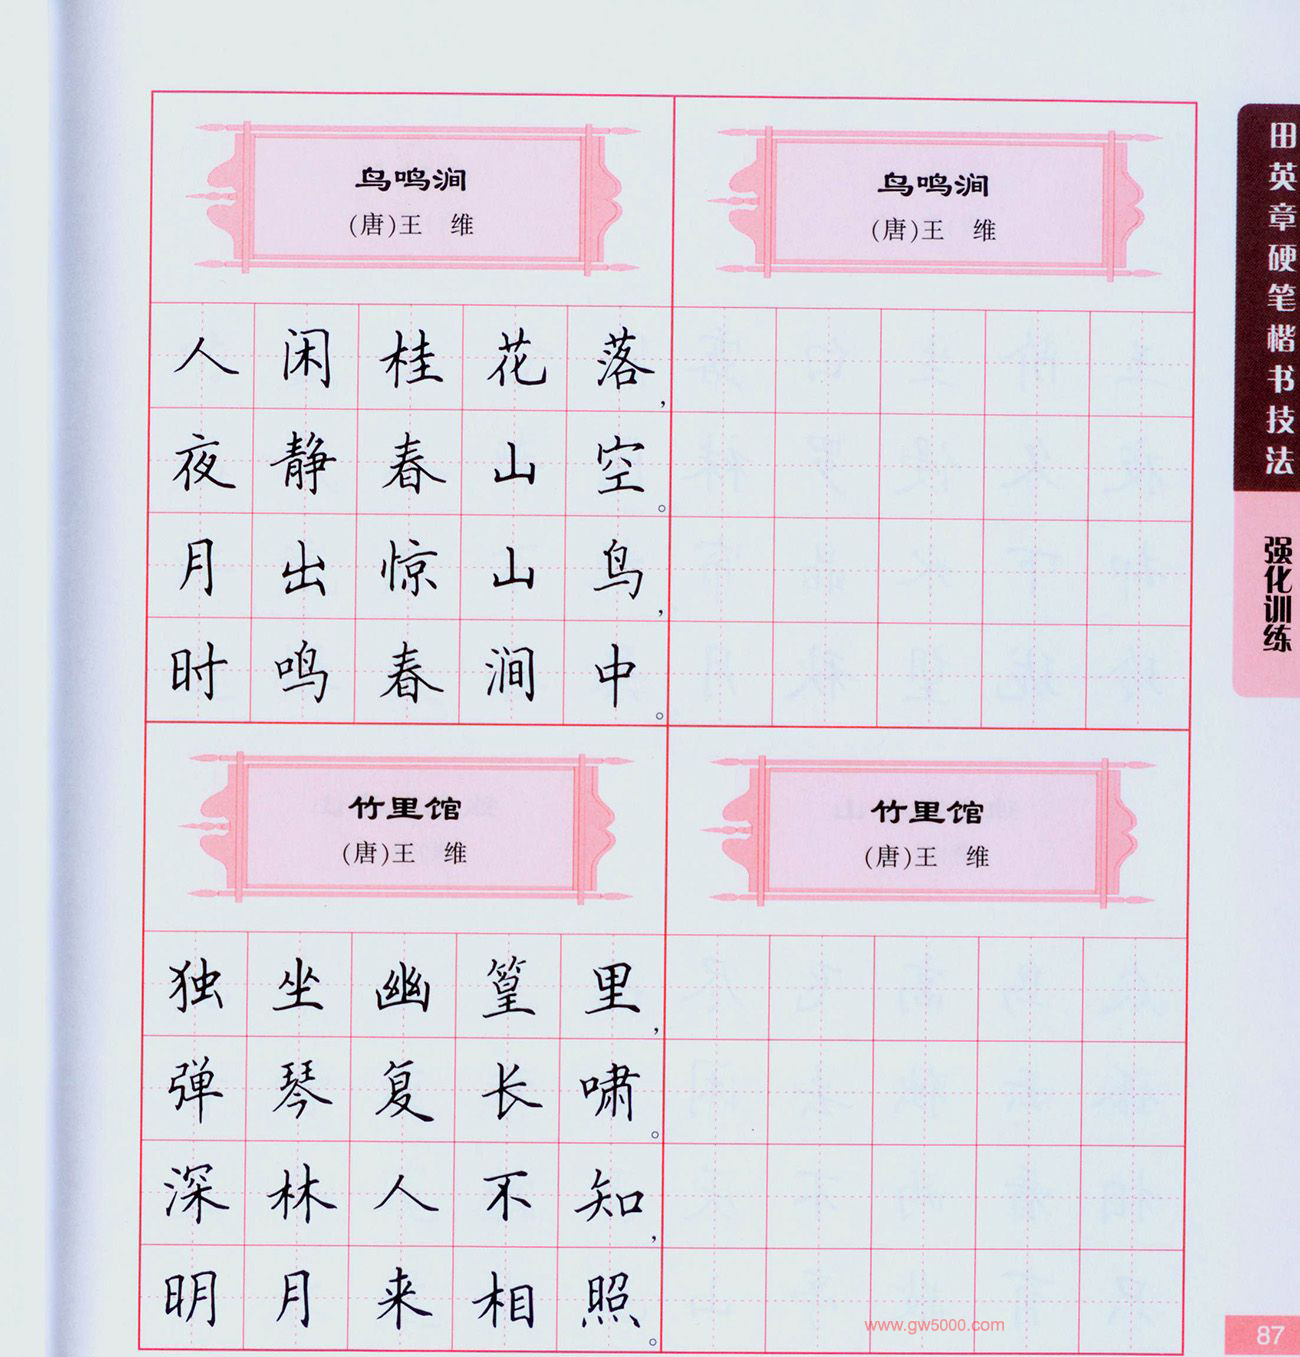 鸟鸣涧
(唐)王　维
人闲桂花落，
夜静春山空。
月出惊山鸟，
时鸣春涧中。
鸟鸣涧
(唐)王　维
竹里馆
(唐)王　维
独坐幽篁里，
弹琴复长啸。
深林人不知，
明月来相照。
竹里馆
(唐)王　维
田英章硬笔楷书技法
强化训练
www.gw5000.com
87